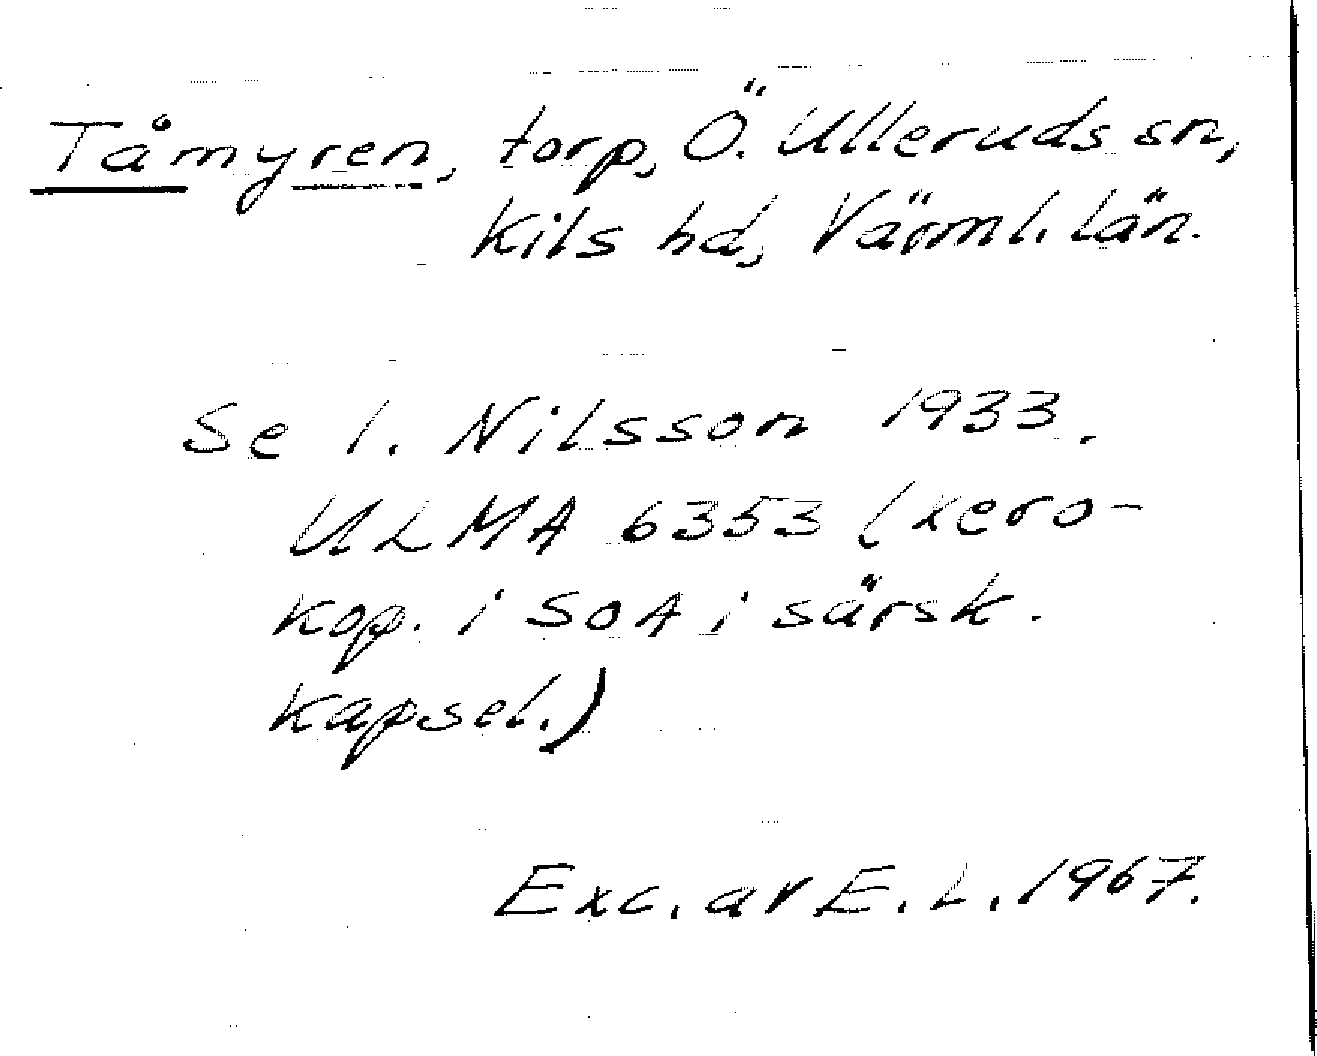 Tåmyren, torp, Ö. Ulleruds sn,
Kils hd, Värml. län.
Se I. Nilsson 1933.
ULMA 6353 (xero-
kop. i SOA i särsk.
kapsel.)
Exc. av E. L. 1967.